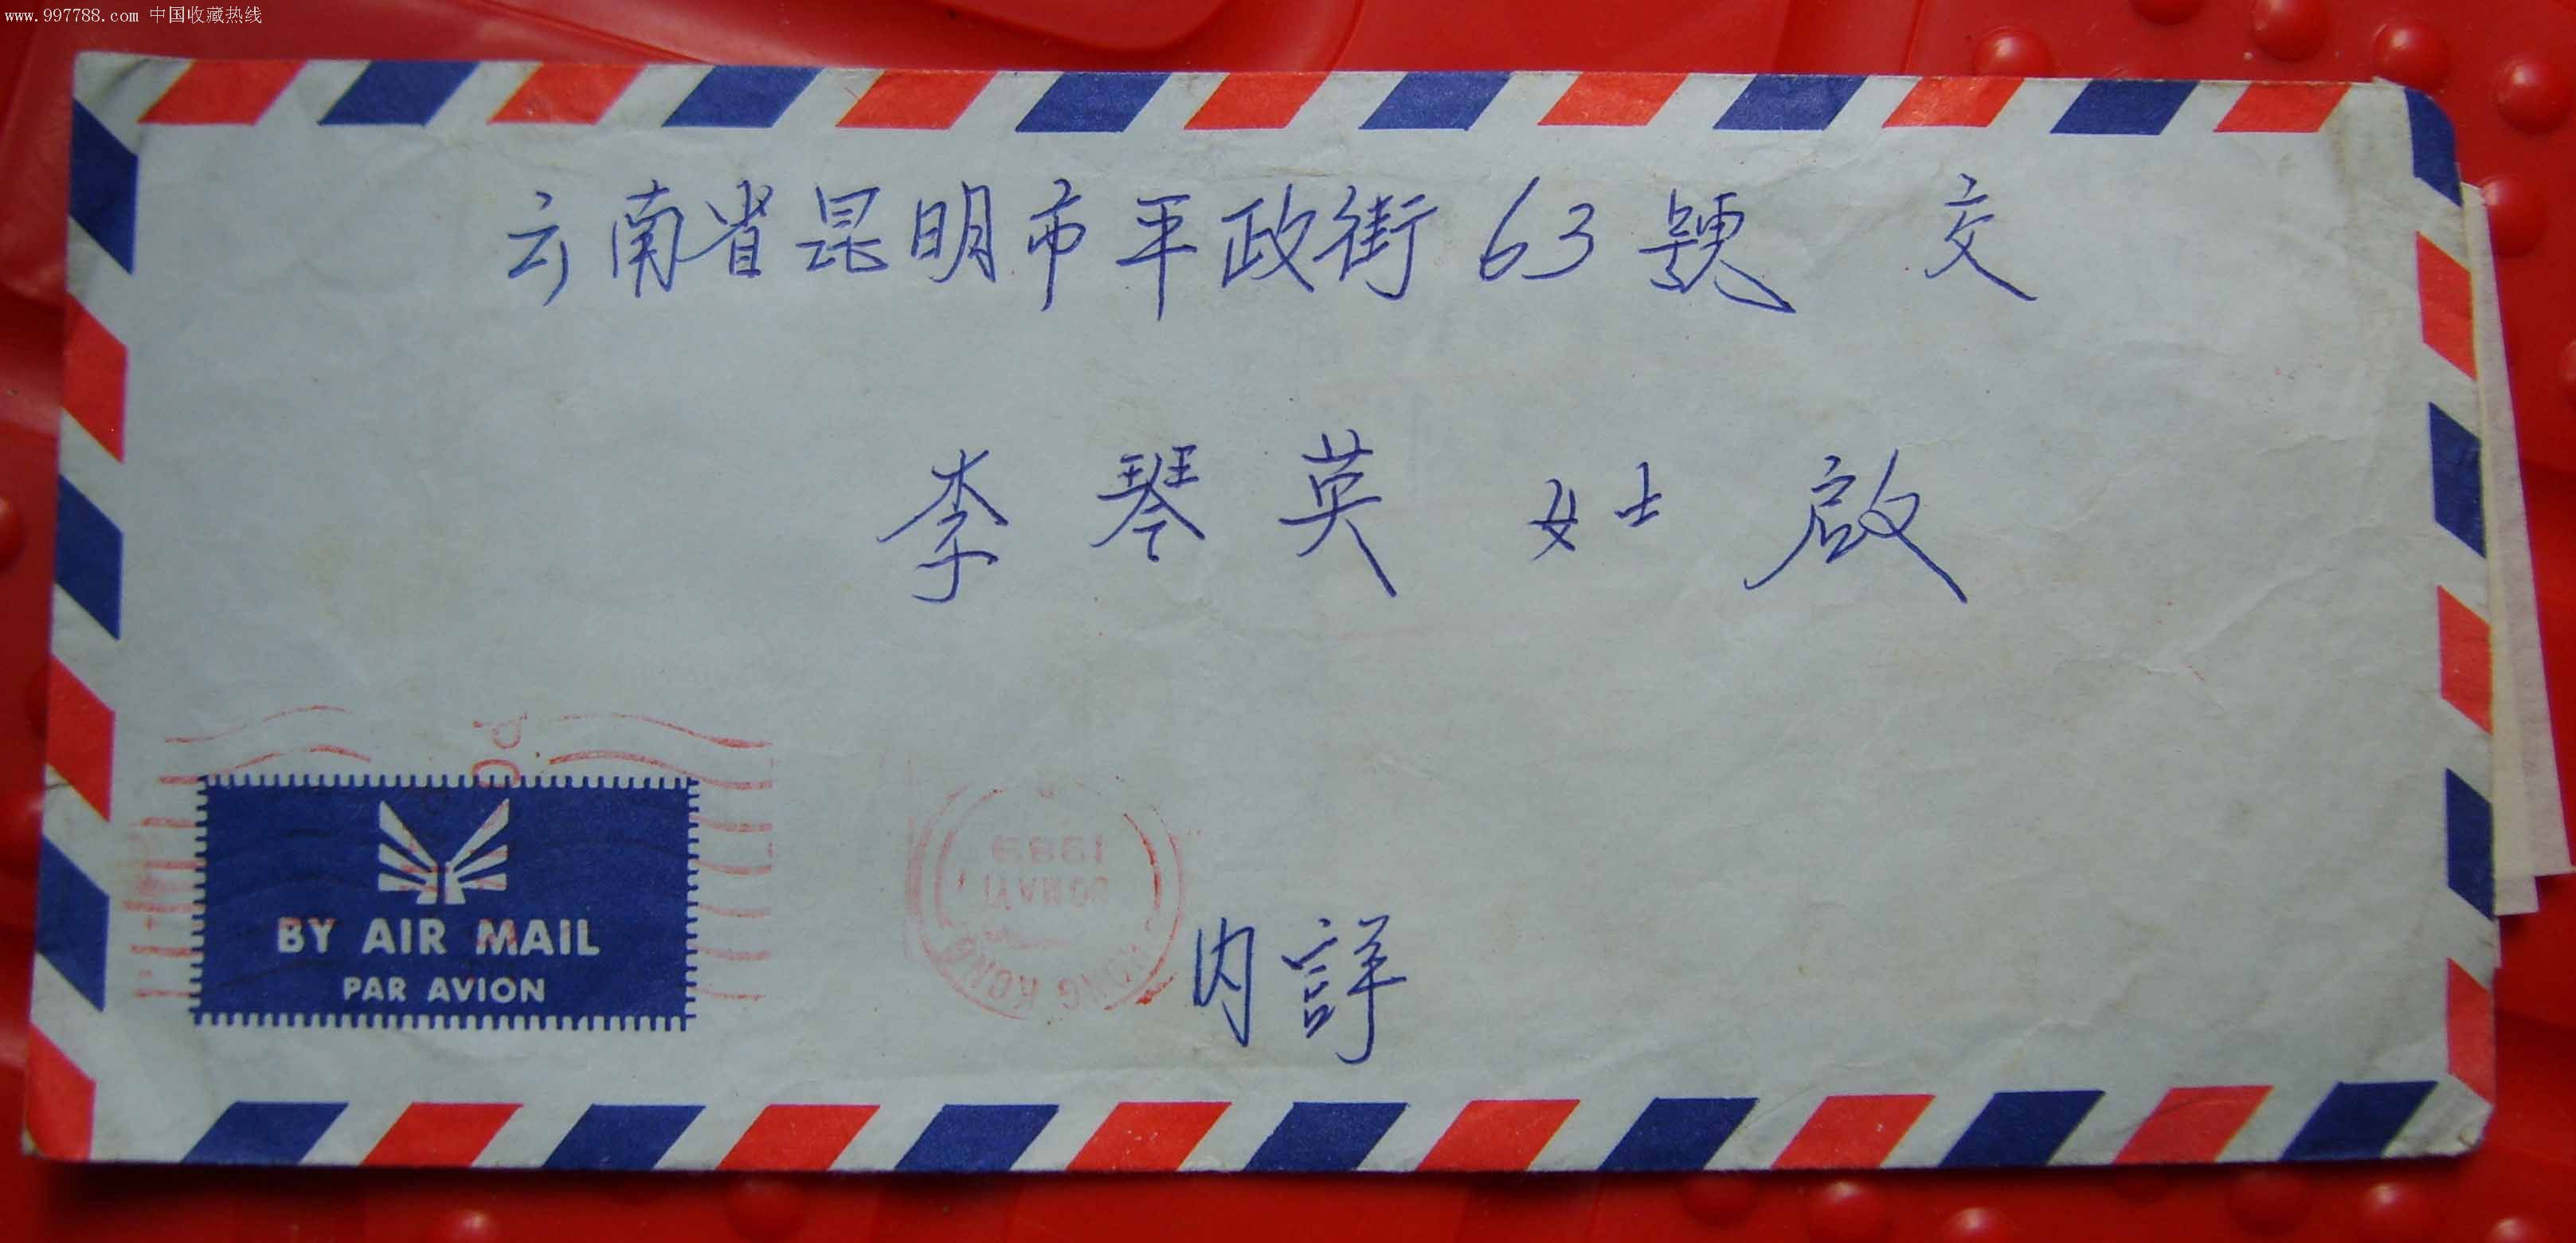 www.997788.com 中国收藏热线
云南省昆明市平政街63號 交
李琴英女士 啟
1989
HONG KONG
BY AIR MAIL
PAR AVION
内詳